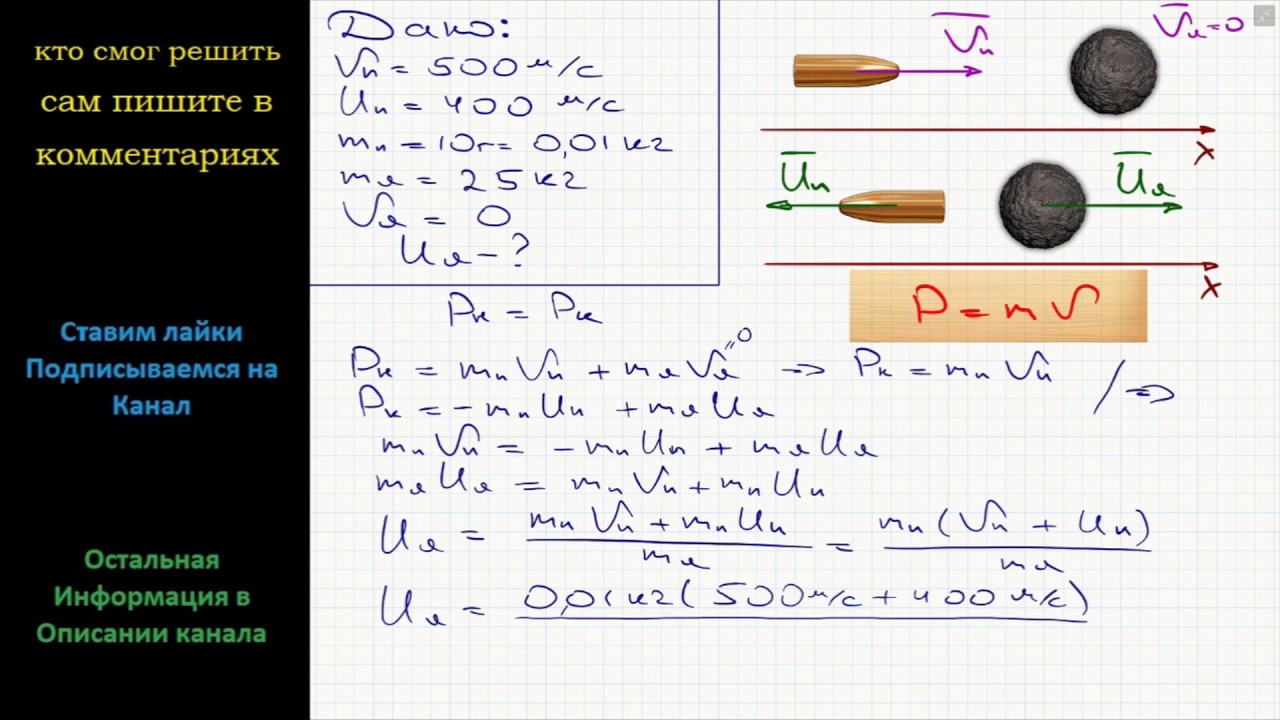 кто смог решить
сам пишите в
комментариях
Ставим лайки
Подписываемся на
Канал
Остальная
Информация в
Описании канала
Дано:
Vп = 500 м/с
Uп = 400 м/с
mп = 10г = 0,01 кг
mя = 25 кг
Vя = 0
Uя - ?
Vп
Vя = 0
x
Uп
Uя
x
P = mV
Pн = Pк
Pн = mпVп + mяVя = 0 → Pн = mпVп / ⇒
Pк = -mпUп + mяUя
mпVп = -mпUп + mяUя
mяUя = mпVп + mпUп
Uя = (mпVп + mпUп) / mя = mп(Vп + Uп) / mя
Uя = 0,01 кг(500 м/с + 400 м/с)